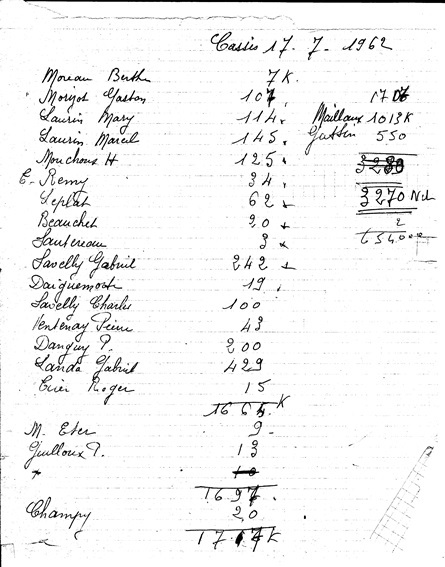 Cassis 17. 7. 1962
Moreau Berthe 7 K.
Morizot Gaston 107
Laurin Mary 114
Laurin Marcel 145
Mouchoux H 125
E. Remy 34
Leplat 62
Beauchet 20
Sautereau 3
Savelly Gabriel 242
Daiguemorte 19
Savelly Charles 100
Ventenay Pierre 43
Danguy P. 200
Landa Gabriel 429
Cuer Roger 15
1665 K
M. Eter 9
Guilloux P. 13
10
1697
Champy 20
1717 K
1707
Maillaux 1013 K
550
3280
3270
2